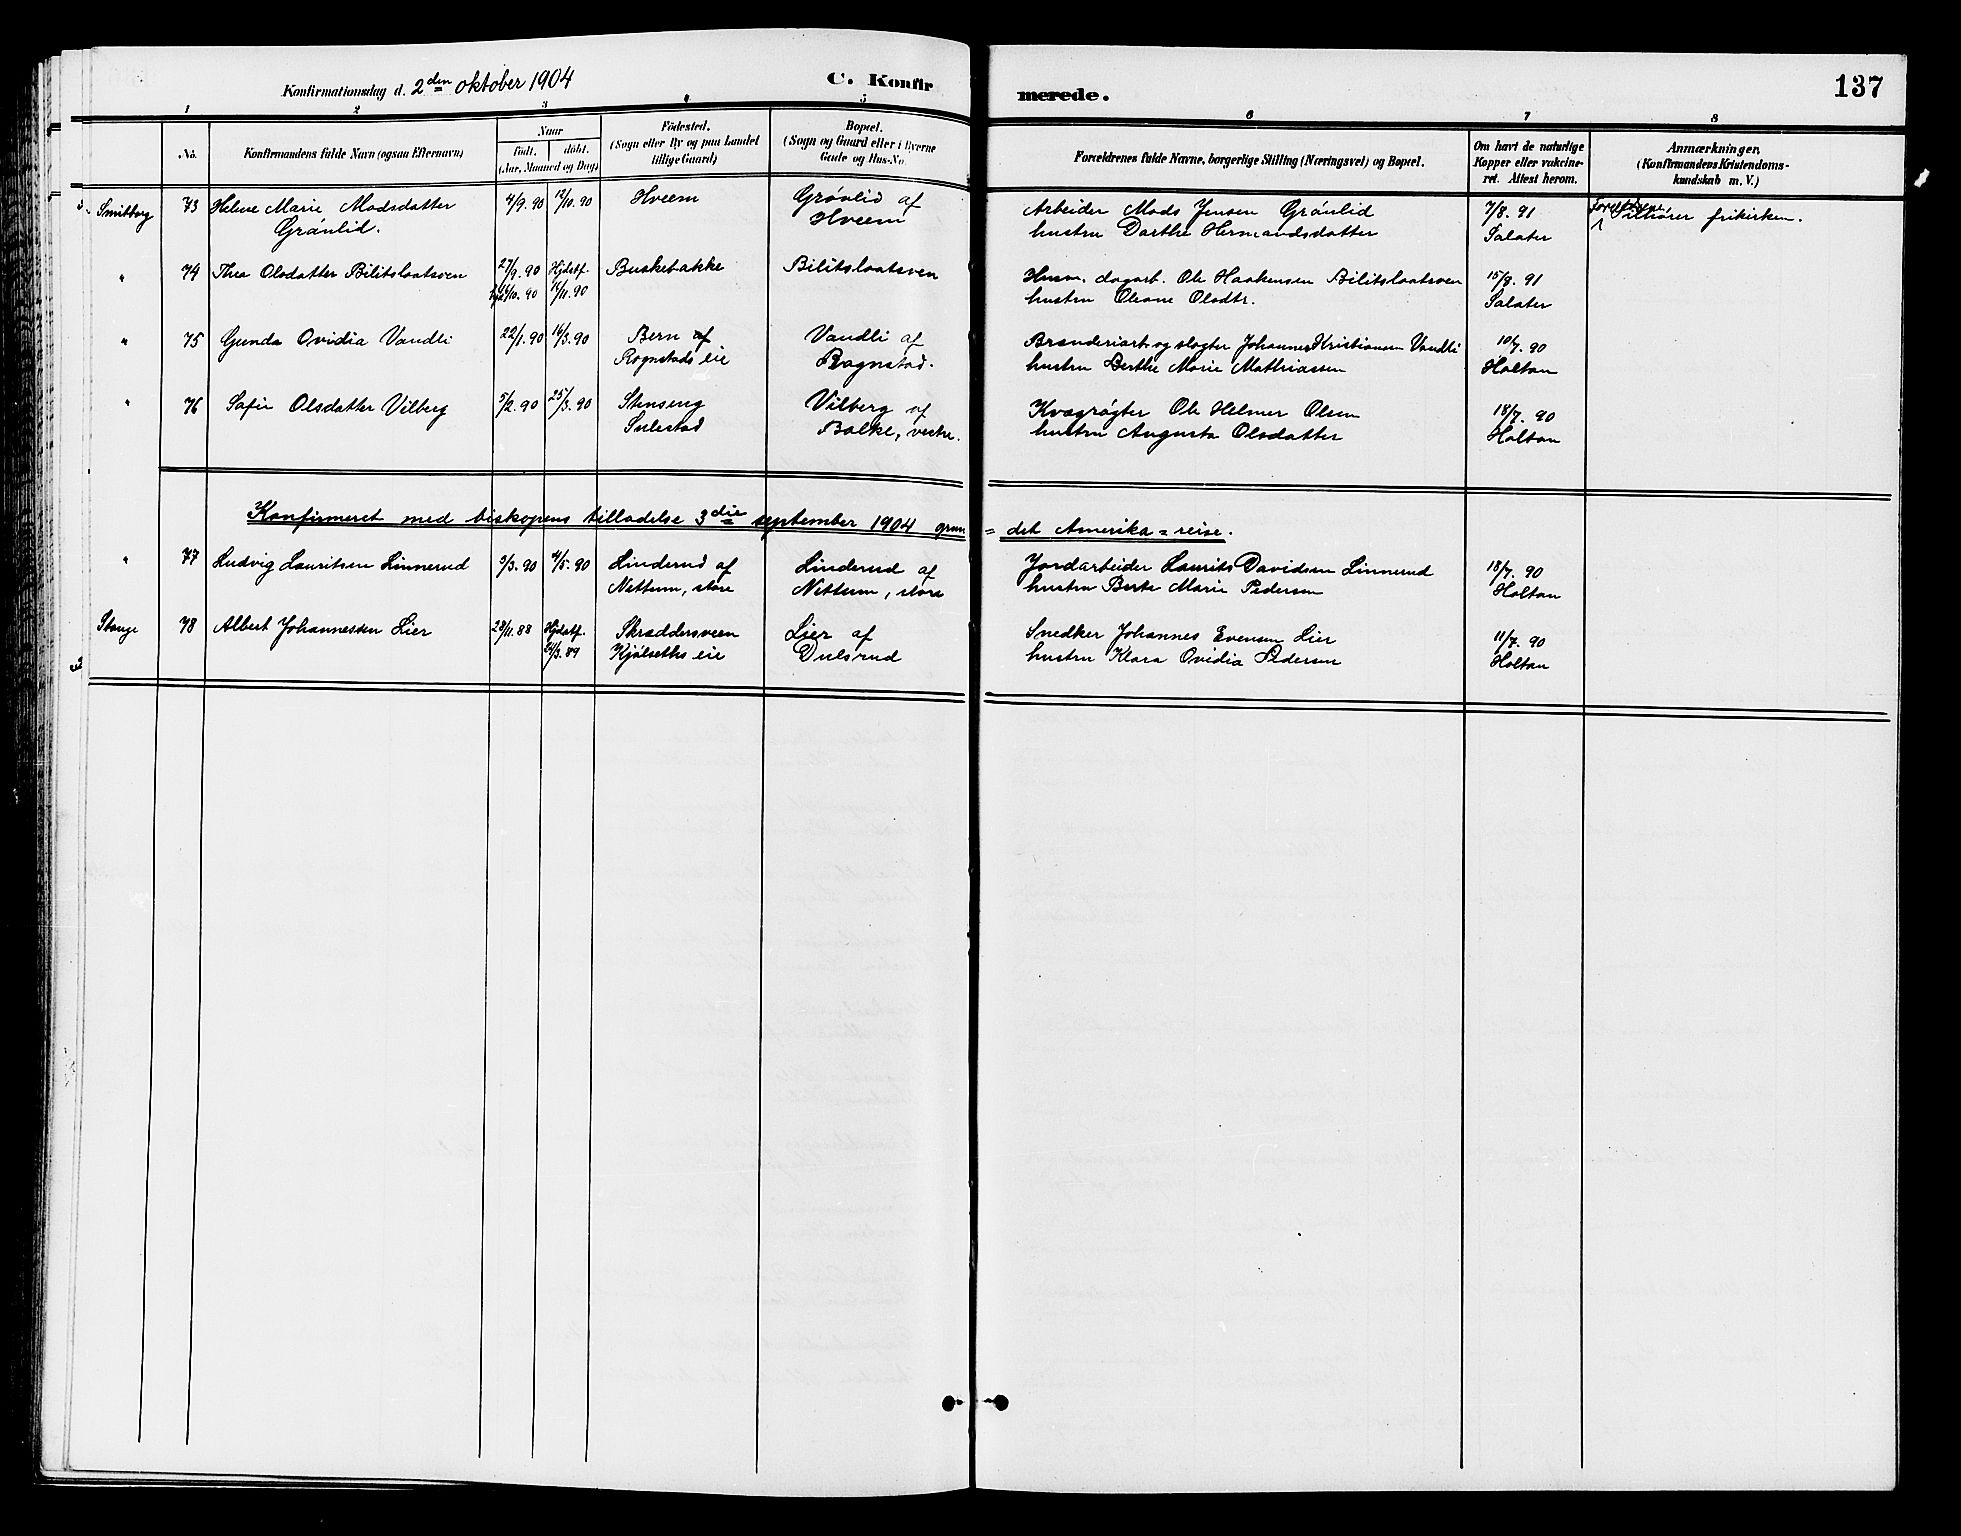 Konfirmationsdag d. 2den oktober 1904
C. Konfir
merede.
137
1 2 3 4 5 6 7 8
No.
Konfirmandens fulde Navn (ogsaa Efternavn)
Naar
Født. døbt.
(Aar, Maaned og Dag)
Fødested.
(Sogn eller By og paa Landet
tillige Gaard)
Bopæl.
(Sogn og Gaard eller i Byerne
Gade og Hus-No.
Forældrenes fulde Navne, borgerlige Stilling (Næringsvei) og Bopæl.
Om havt de naturlige
Kopper eller vakcine-
ret. Attest herom.
Anmærkninger,
(Konfirmandens Kristendoms-
kundskab m. V.)
Smitborg 73 Helene Marie Madsdatter 4/9. 90 12/10. 90 Hveem Grønlid af Arbeider Mads Jensen Grønlid 7/8. 91 Forældrene tilhører frikirken.
Grønlid. Hveem hustru Dorthe Hermandsdatter Salater
" 74 Thea Olsdatter Bilitslaatsven 27/9. 90 Hjdøtf. Buskebakke Bilitslaatsven Husm. dagarb. Ole Haakensen Bilitslaatsven 15/8. 91
16/11. 90 hustru Oleane Olsdtr. Salater
" 75 Gunda Ovidia Vandli 22/1. 90 16/3. 90 Bern af Vandli af Brænderiarb. og slagter Johannes Kristiansen Vandli 10/7. 90
Rognstads eie Rognstad. hustru Berthe Marie Mathiassen Holtan
" 76 Sofie Olsdatter Vilberg 5/2. 90 25/3. 90 Stenseng Vilberg af Kvægrøgter Ole Helmer Olsen 18/7. 90
Sulestad Balke, vestre. hustru Augusta Olsdatter Holtan
Konfirmeret med biskopens tilladelse 3die september 1904 grun= det Amerika=reise.
" 77 Ludvig Lauritsen Linnerud 9/3. 90 4/5. 90 Linderud af Linderud af Jordarbeider Laurits Davidsen Linnerud 18/7. 90
Nettum, store Nettum, store hustru Berte Marie Pedersen Holtan
Stange 78 Albert Johannessen Lier 28/11. 88 Hjdøtf. Skræddersveen Lier af Snedker Johannes Evensen Lier 11/7. 90
24/3. 89 Kjølseths eie Dulsrud hustru Klara Ovidia Pedersen Holtan